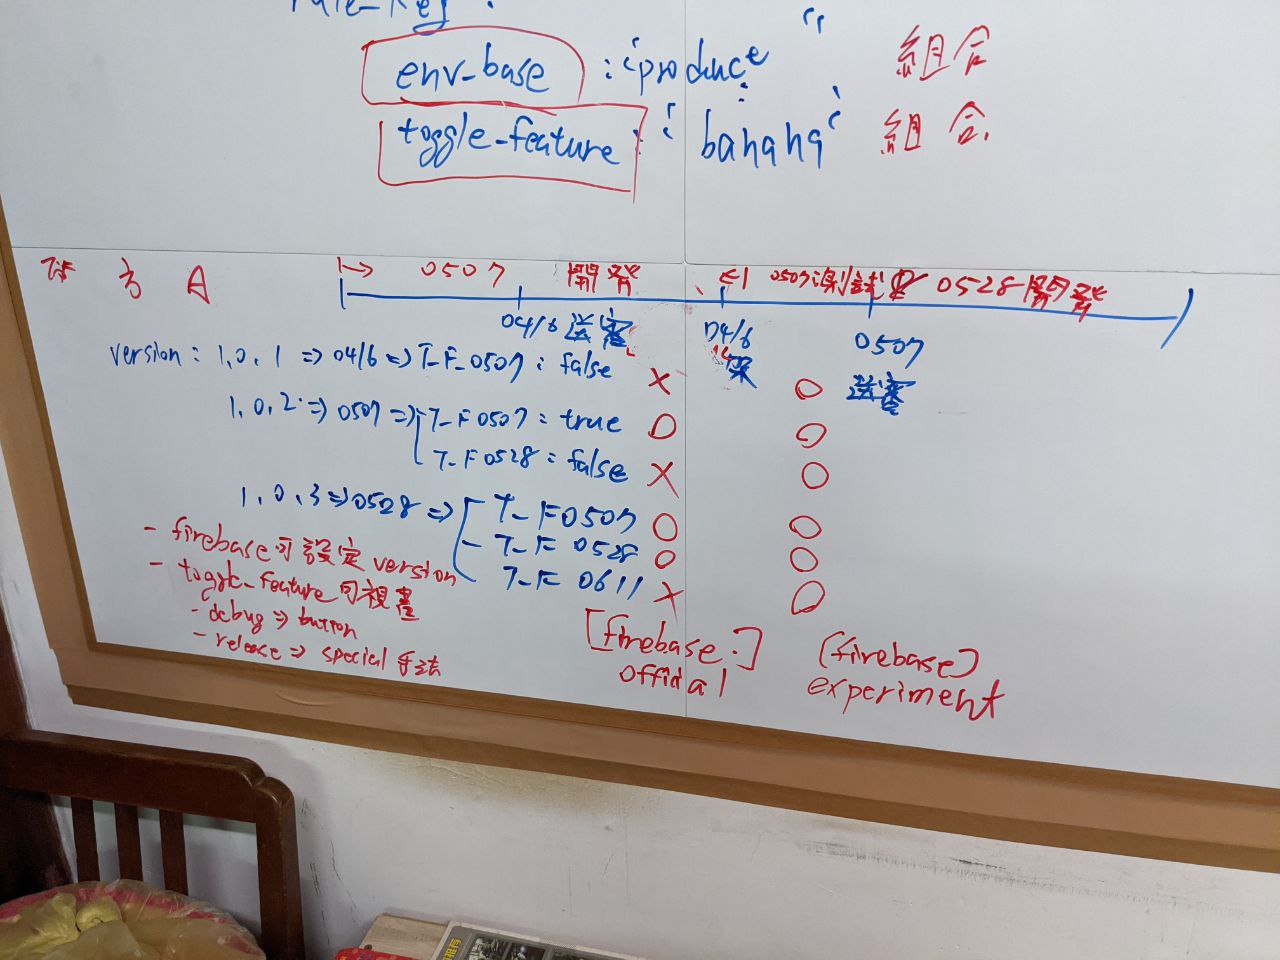 env-base : "produce" 組合
toggle-feature : "banana" 組合
方 A
0507 開發
0507測試 0528開發
04/6 送審
04/6
0507
送審
version : 1.0.1 => 04/6 => T_F_0507 : false X O
1.0.2 => 0507 => T_F0507 : true O O
T_F0528 : false X O
1.0.3 => 0528 => T_F0507 O O
T_F 0528 O O
T_F 0611 X O
- firebase可設定version
- toggle_feature可視畫
- debug => button
- release => special 手法
[firebase.]
official
[firebase]
experiment